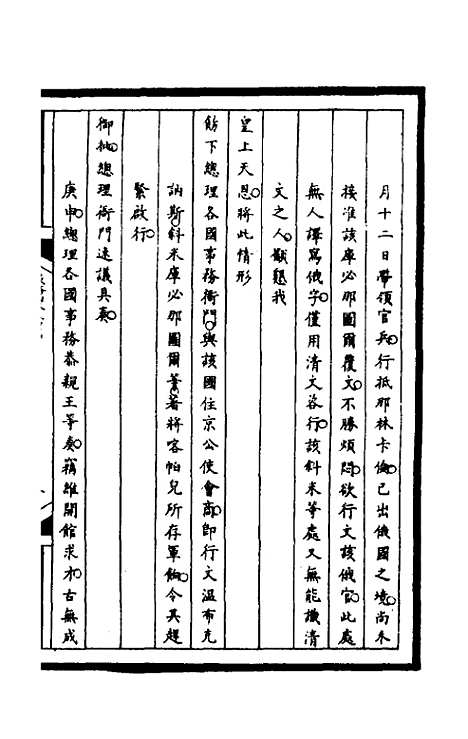 月十二日帶領官兵。行抵那林卡倫。已出俄國之境。尚未
接准該庫必那圖爾覆文。不勝煩悶。欲行文該俄官。此處
無人譯寫俄字。僅用清文咨行。該斜米等處又無能識清
文之人。懇我
皇上天恩。將此情形
飭下總理各國事務衙門。與該國住京公使會商。即行文溫布克
訥斯。斜米庫必那圖爾等。著將喀帕兒所存軍餉。令其趕
緊啟行。
御批。總理衙門速議具奏。
庚申。總理各國事務恭親王等奏。竊維開館求才。古無成